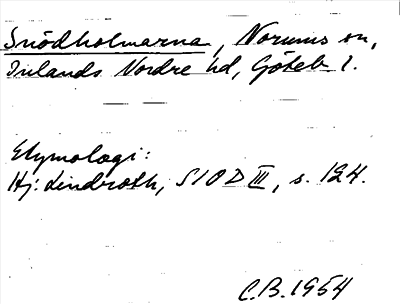 Snödholmarna, Norums sn,
Inlands Nordre hd, Göteb. l.
Etymologi:
Hj. Lindroth, SIOD III, s. 124.
C.B. 1954